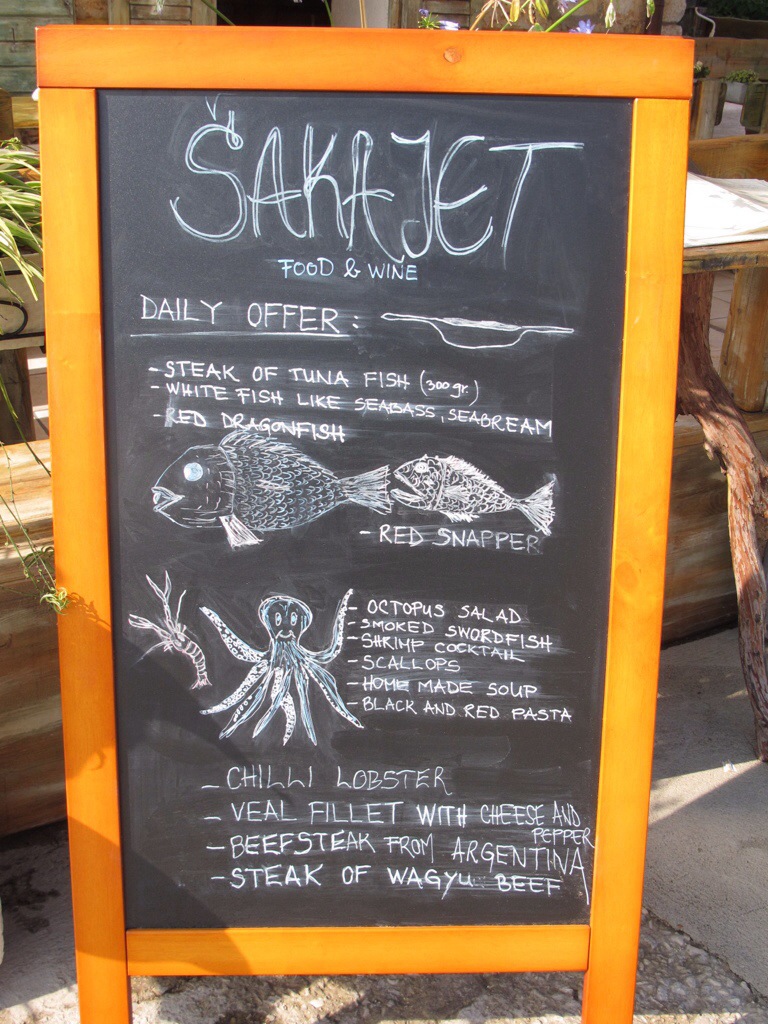 ŠAKAJET
FOOD & WINE
DAILY OFFER:
- STEAK OF TUNA FISH (300 gr.)
- WHITE FISH LIKE SEABASS, SEABREAM
- RED DRAGONFISH
- RED SNAPPER
- OCTOPUS SALAD
- SMOKED SWORDFISH
- SHRIMP COCKTAIL
- SCALLOPS
- HOME MADE SOUP
- BLACK AND RED PASTA
- CHILLI LOBSTER
- VEAL FILLET WITH CHEESE AND
PEPPER
- BEEFSTEAK FROM ARGENTINA
- STEAK OF WAGYU BEEF